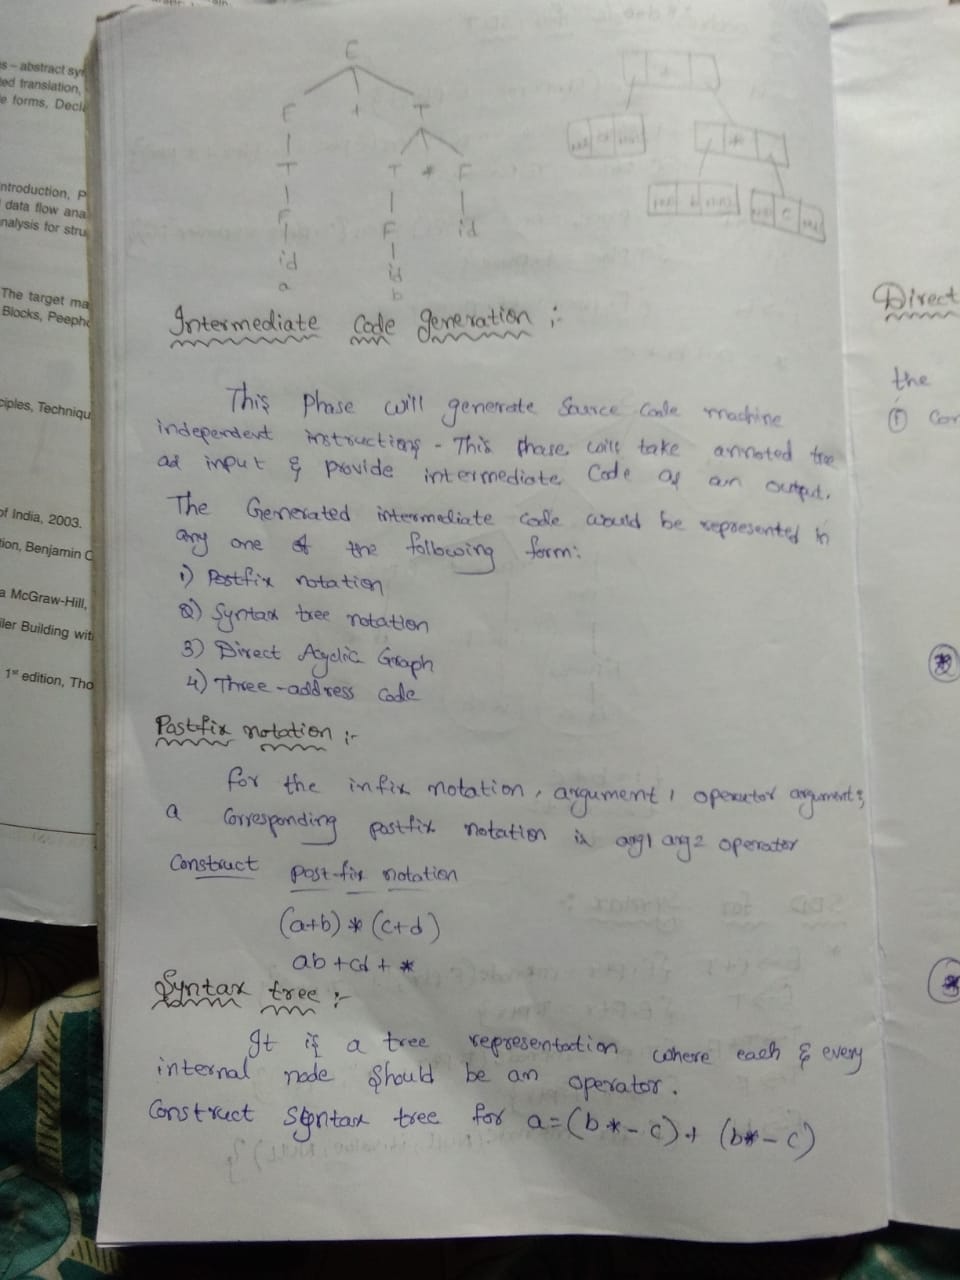 s – abstract syn
ed translation,
e forms, Decla
ntroduction, P
data flow ana
nalysis for stru
The target ma
Blocks, Peepho
ciples, Techniqu
of India, 2003.
tion, Benjamin C
a McGraw-Hill,
iler Building wit
1st edition, Tho
E
E + T
T T * F
F F id
id id
a b
+
*
b
c
Intermediate Code generation :-
This phase will generate Source Code machine
independent instructions - This phase will take annoted tree
as input & provide intermediate Code as an output.
The Generated intermediate code would be represented in
any one of the following form:
1) Postfix notation
2) Syntax tree notation
3) Direct Acyclic Graph
4) Three-address code
Postfix notation :-
for the infix notation, argument 1 operator argument 2
a corresponding postfix notation is arg1 arg2 operator
Construct post-fix notation
(a+b) * (c+d)
ab+cd+*
Syntax tree :-
It is a tree representation where each & every
internal node should be an operator.
Construct Syntax tree for a=(b*-c)+(b*-c)
Direct
the
① Con